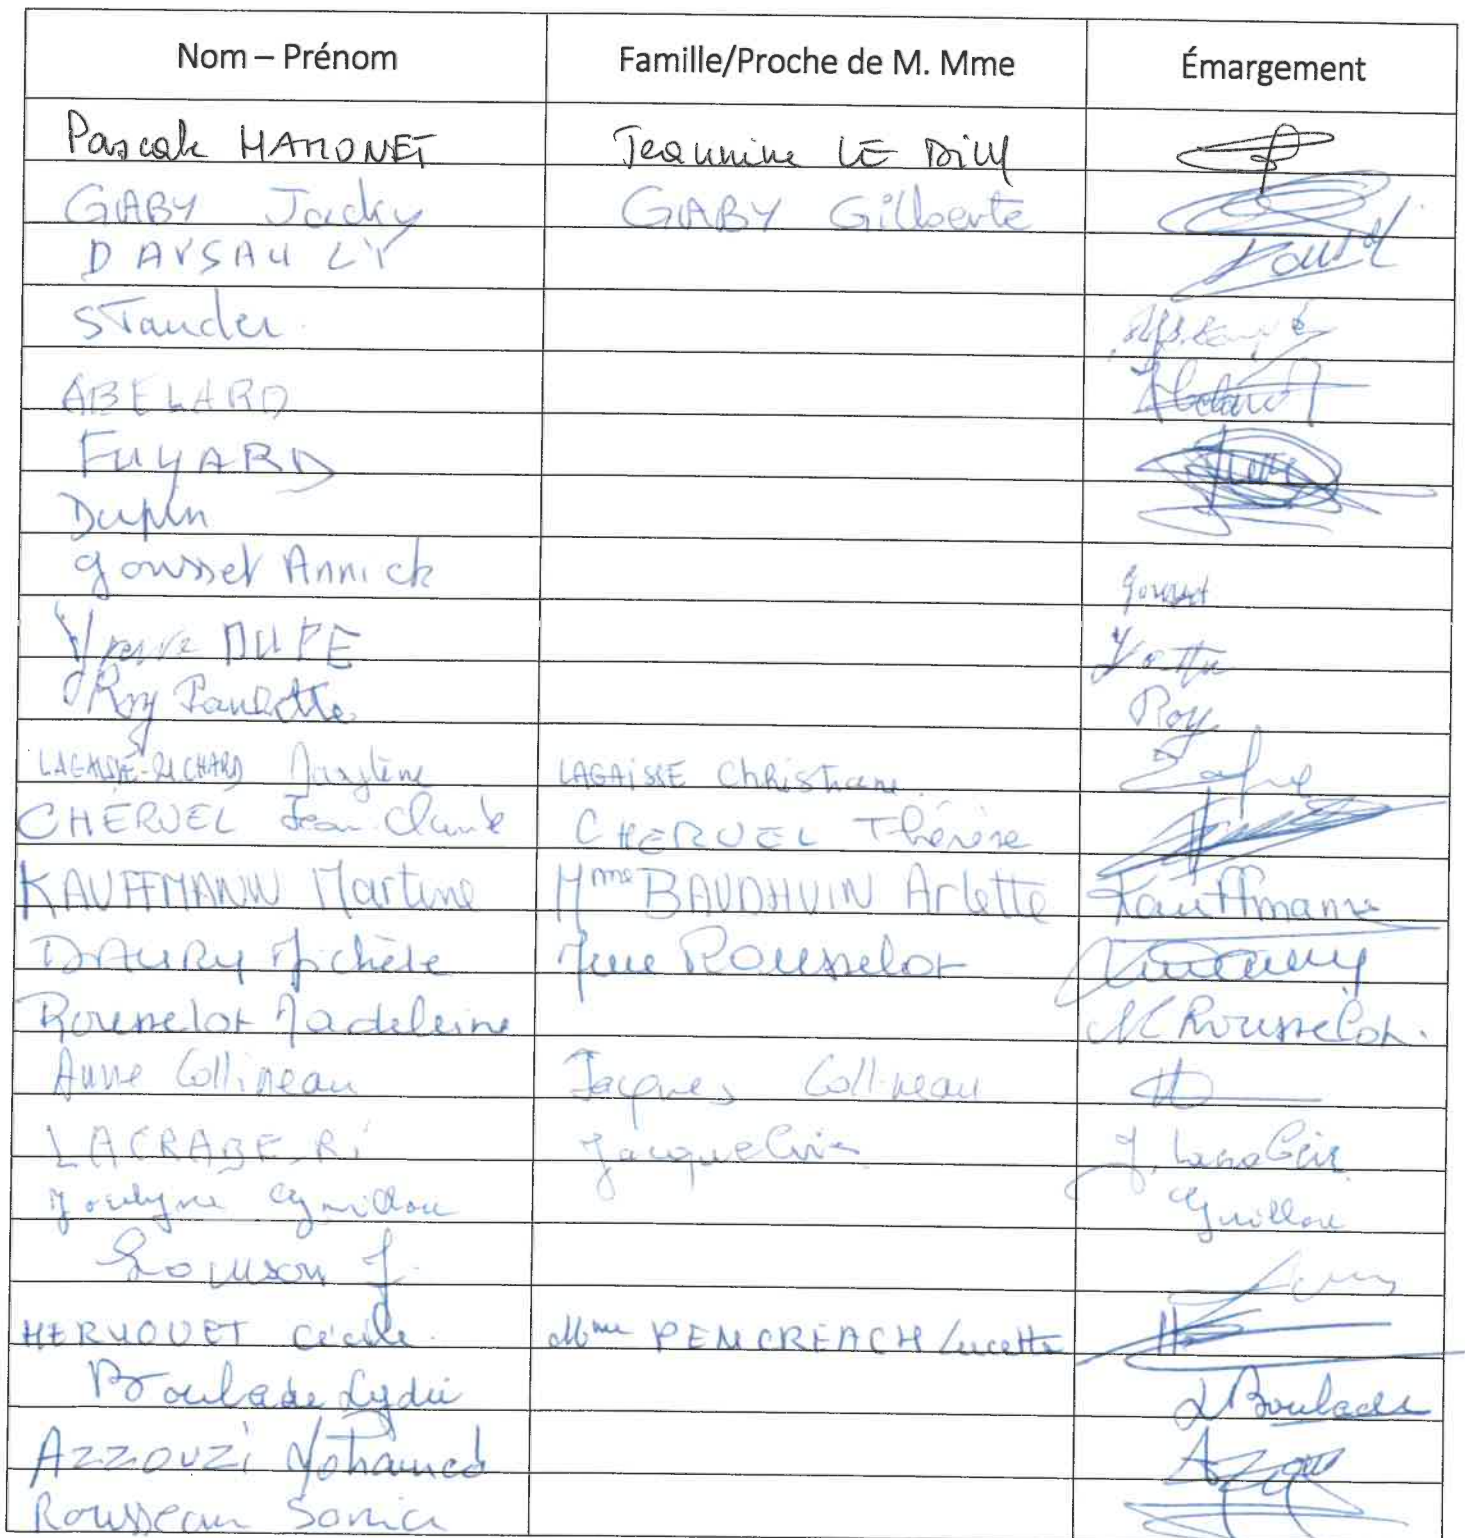 Nom – Prénom Famille/Proche de M. Mme Émargement
Pascale HAMONET Jeannine LE DILY
GABY Jacky GABY Gilberte
DAYSAULY
STauder.
ABELARD Abelard
FUYARD
Dupin
gousset Annick gousset
DUPE Yvette
Roy Paulette Roy
LAGAISSE-RICHARD Marylène LAGAISSE Christiane.
CHERUEL Jean-Claude CHERUEL Thérèse
KAUFFMANN Martine Mme BAUDHUIN Arlette Kauffmann
DAURY Michèle Mme Rousselot
Rousselot Madeleine M Rousselot.
Anne Collineau Jacques Collineau
LACRABERI Jacqueline
Jocelyne Guillou Guillou
Louison J.
HERVOUET Cécile. Mme PENCREACH Lucette
Boulade Lydie L Boulade
AZZOUZI Mohamed
Rousseau Sonia